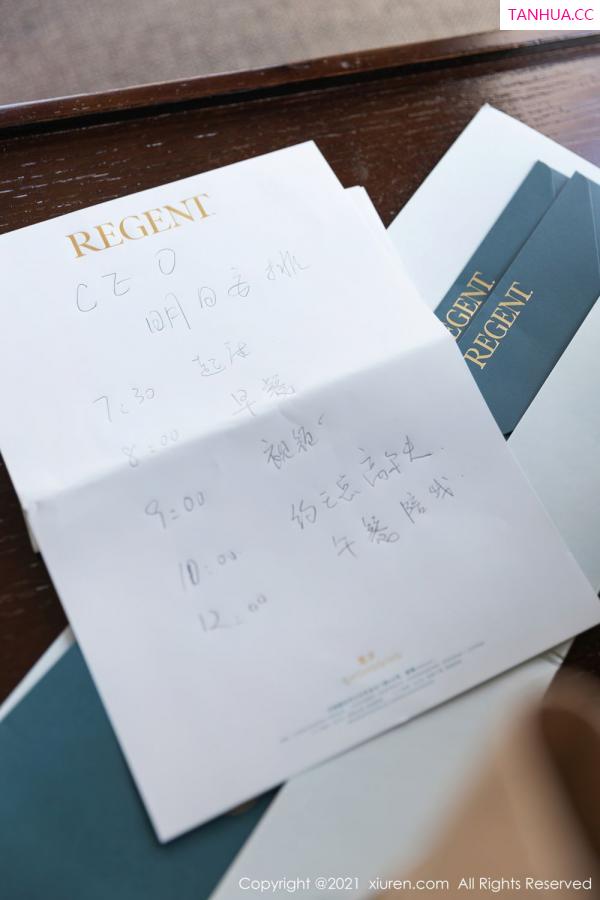 TANHUA.CC
REGENT
CEO
明日安排
7:30 起床
8:00 早餐
9:00 视频
10:00 约王总高尔夫
12:00 午餐陪我
EGENT
REGENT
Copyright @2021 xiuren.com All Rights Reserved